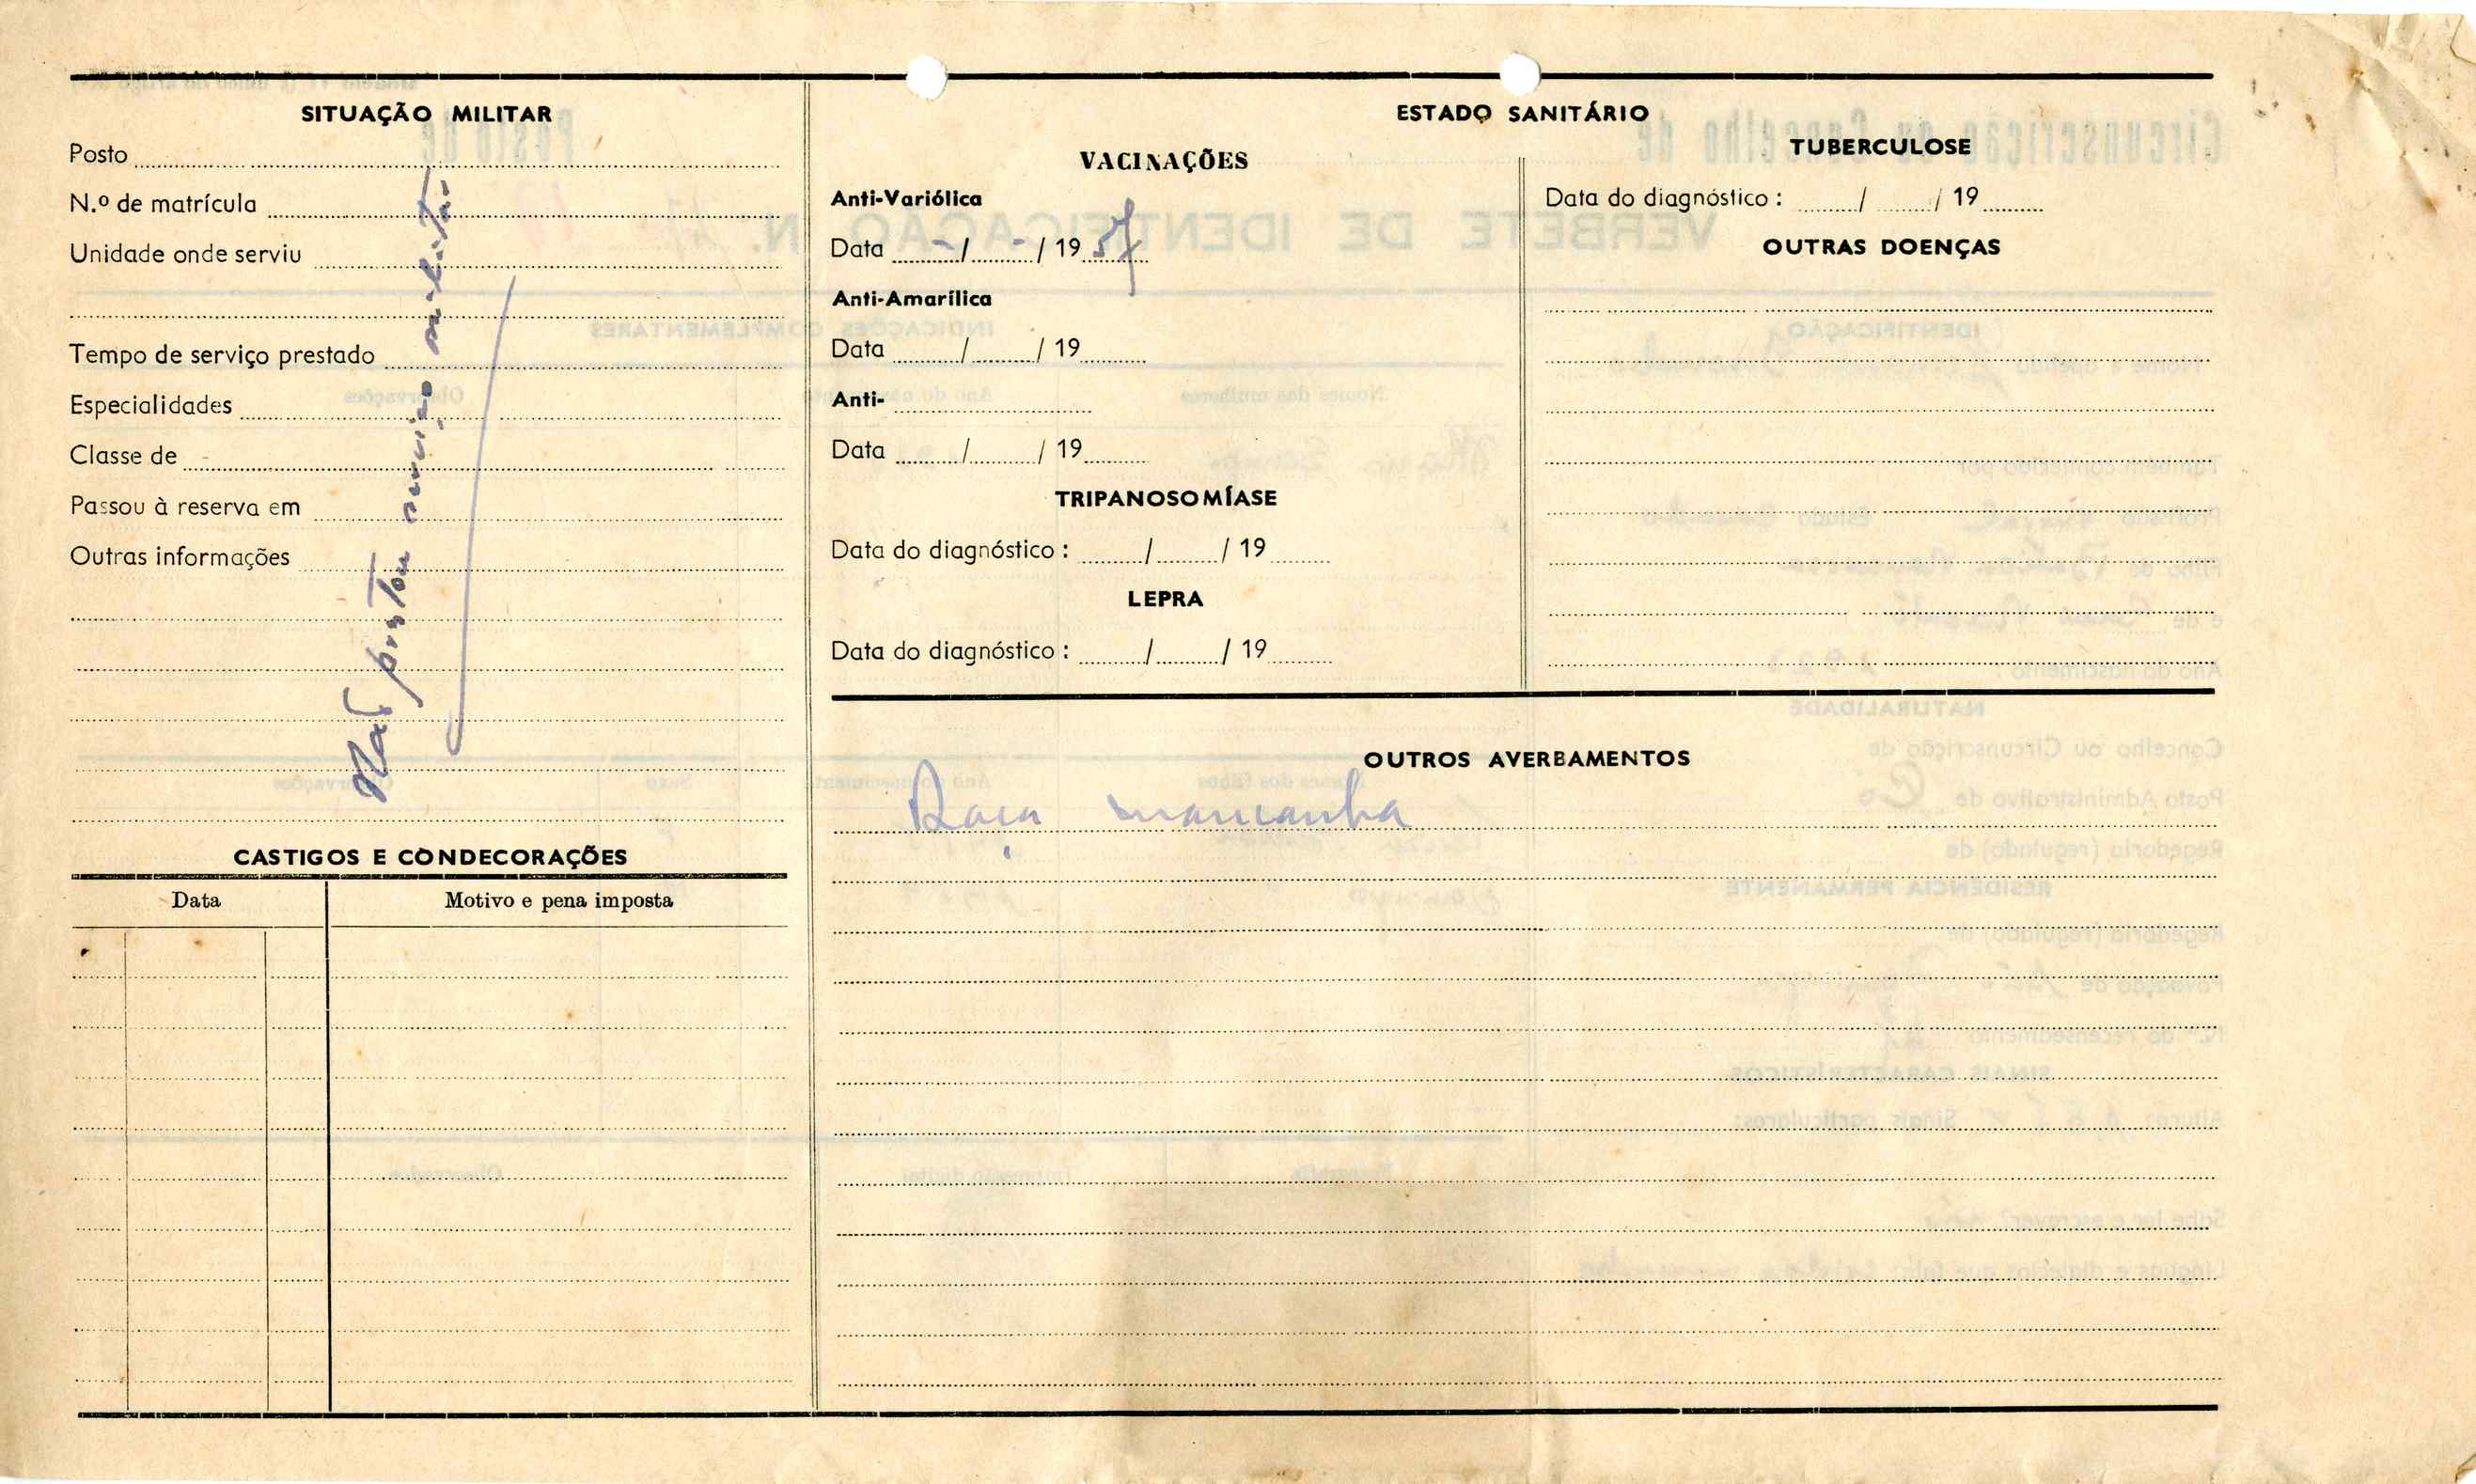 SITUAÇÃO MILITAR
Posto
N.º de matrícula
Unidade onde serviu
Tempo de serviço prestado
Especialidades
Classe de
Passou à reserva em
Outras informações
Não prestou serviço militar
CASTIGOS E CONDECORAÇÕES
Data Motivo e pena imposta
ESTADO SANITÁRIO
VACINAÇÕES
Anti-Variólica
Data - / - / 19 57
Anti-Amarílica
Data / / 19
Anti-
Data / / 19
TRIPANOSOMÍASE
Data do diagnóstico : / / 19
LEPRA
Data do diagnóstico : / / 19
TUBERCULOSE
Data do diagnóstico : / / 19
OUTRAS DOENÇAS
OUTROS AVERBAMENTOS
Raça mancanha